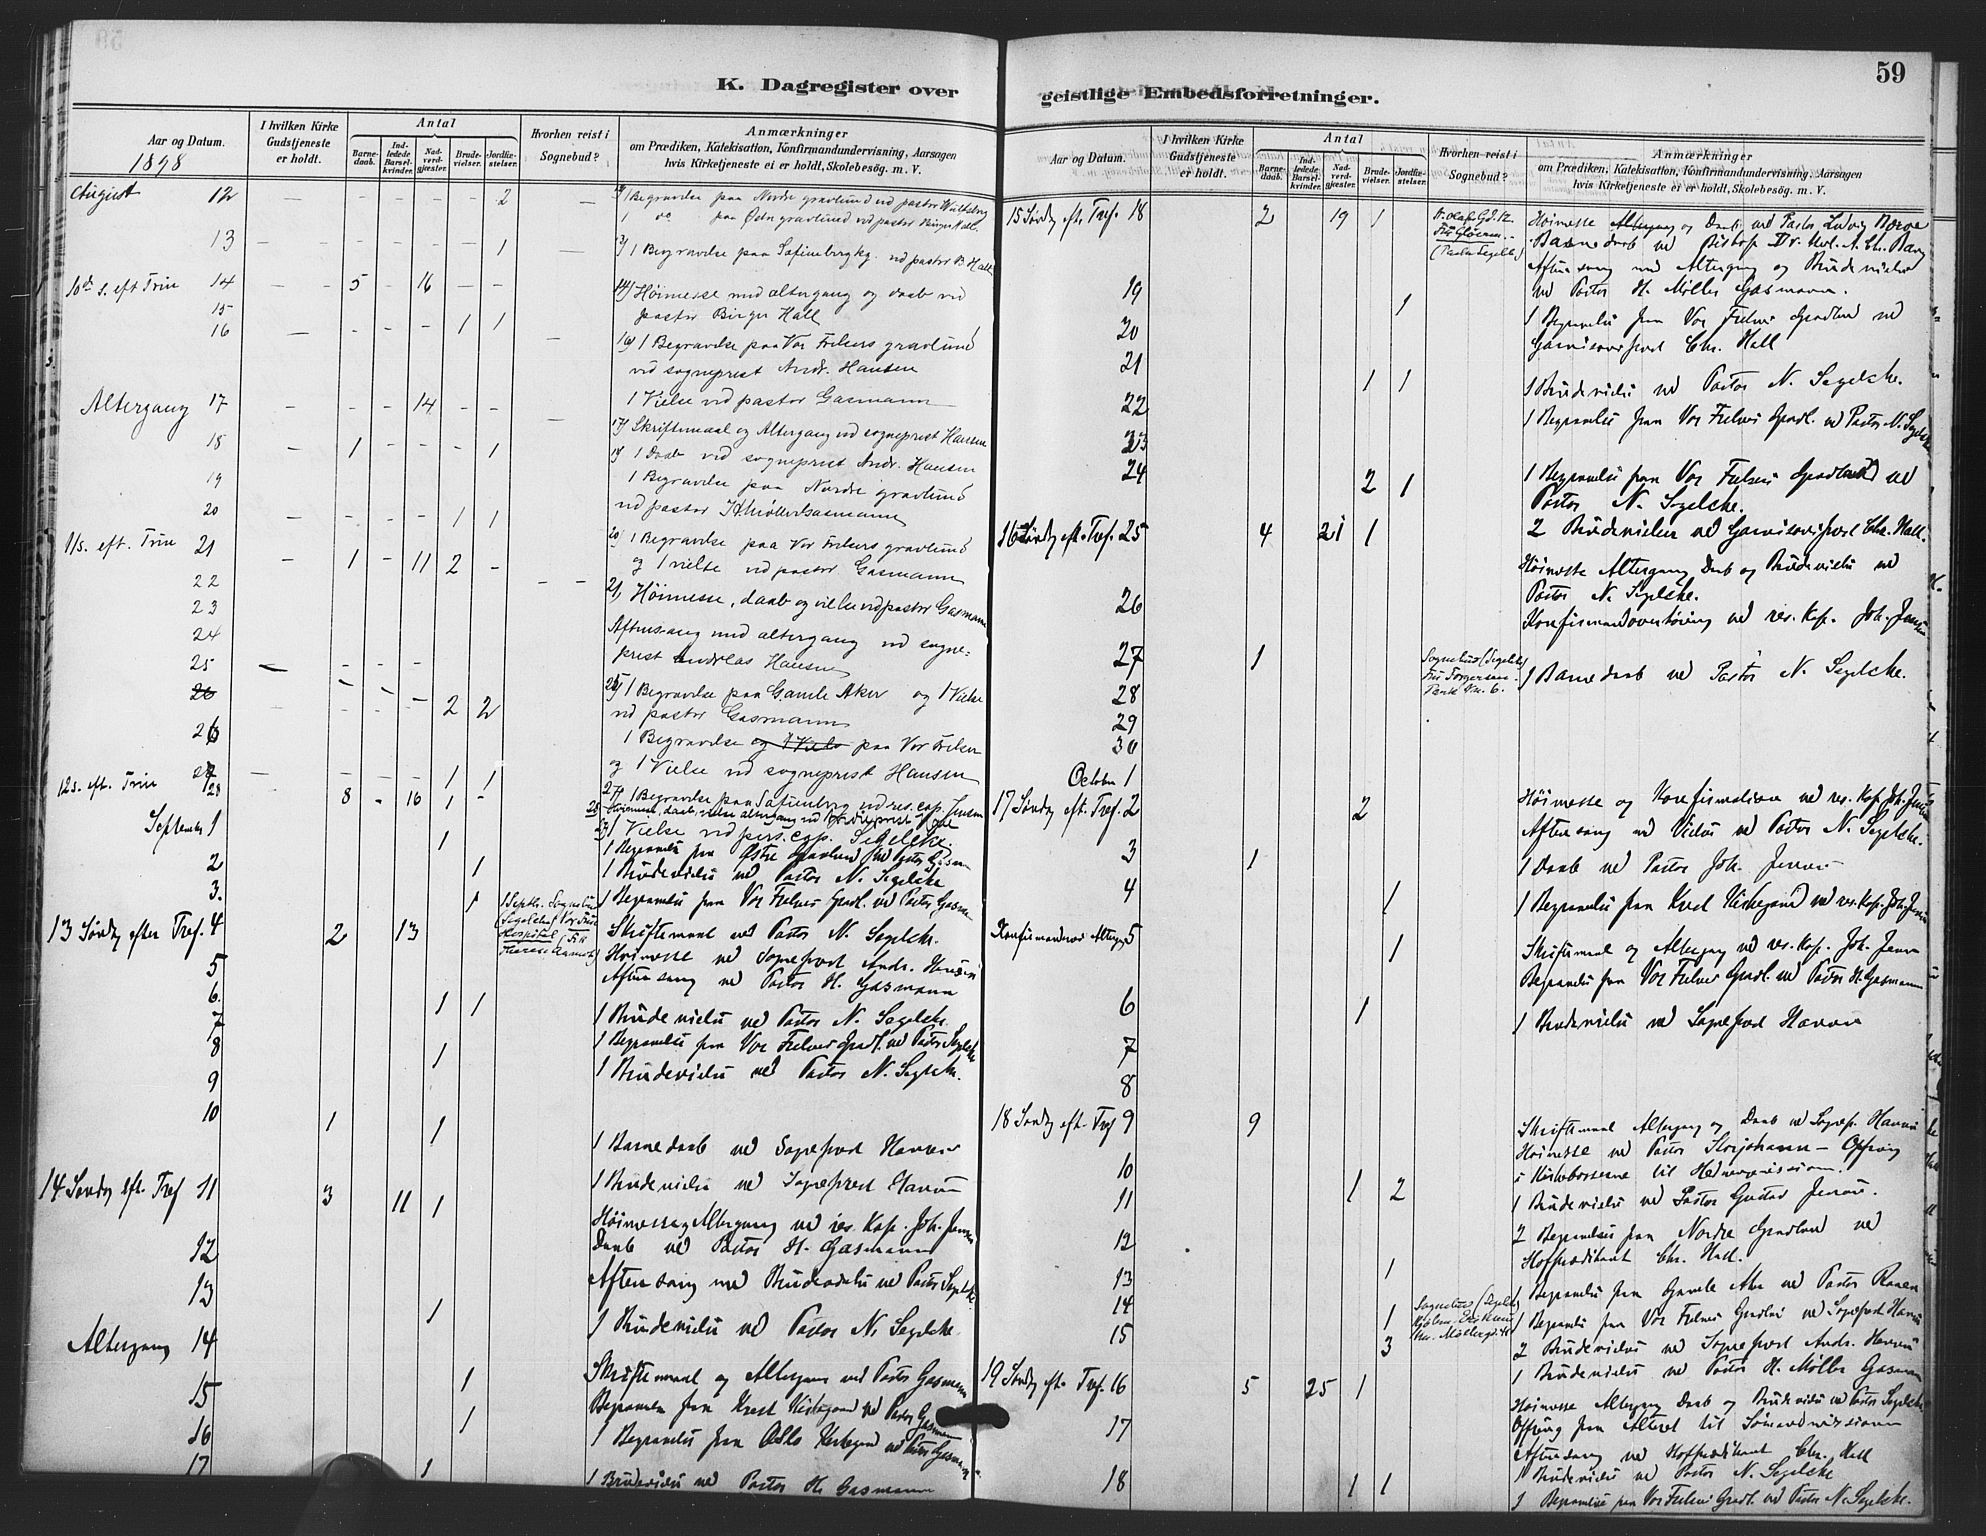 59
K. Dagregister over
geistlige Embedsforretninger.
Aar og Datum.
1898
I hvilken Kirke Gudstjeneste er holdt.
Antal
Barne-daab.
Ind-ledede Barsel-kvinder.
Nad-verd-gjæster.
Brude-vielser.
Jordfæ-stelser.
Hvorhen reist i Sognebud?
Anmærkninger
om Prædiken, Katekisation, Konfirmandundervisning, Aarsagen
hvis Kirketjeneste ei er holdt, Skolebesøg. m. V.
August 12 - - - - - 2 -
1 Begravelse paa Nordre gravlund ved pastor
1 do paa Østre gravlund ved pastor Birger Hall.
13 - - - - - 1 -
13) 1 Begravelse paa Sofienberg kg. ved pastor B Hall
10de s. eft Trin 14 - - 5 - 16 - -
14) Høimesse med altergang og daab ved
pastor Birger Hall
15
16 - - - - 1 1 -
16) 1 Begravelse paa Vor Frelsers gravlund
ved sogneprest Andr. Hansen
1 Vielse ved pastor Gasmann
Altergang 17 - - - 14 - - -
17) Skriftemaal og Altergang ved sogneprest Hansen
18 - 1 - - - 1
1 Daab ved sogneprest Andr. Hansen
1 Begravelse paa Nordre gravlund
ved pastor H Møller Gasmann
19
20 - - - - 1 1
20) 1 Begravelse paa Vor Frelsers gravlund
og 1 vielse ved pastor Gasmann
11 s. eft. Trin 21 - 1 - 11 2 - - -
21) Høimesse, daab og vielse ved pastor Gasmann
Aftensang med altergang ved sogne-
prest Andreas Hansen
22
23
24
25 - - - -
25) 1 Begravelse paa Gamle Aker og 1 Vielse
ved pastor Gasmann
26
26 - - - 2 2
1 Begravelse og 1 Vielse paa Vor Frelser
og 1 Vielse ved sogneprest Hansen
27 - - - - 1 1
27) 1 Begravelse paa Sofienberg ved res. cap. Jensen
12 s. eft. Trin 28 8 - 16 1 -
1 Vielse ved pers. cap. Segelcke.
September 1 1
1 Begravelse fra Østre Gravlund ved Pastor Gasm
2 1
1 Brudevielse ved Pastor N. Segelcke
3. 1
1 Begravelse fra Vor Frelsers Gravl. ved Pastor Gasm
13 Søndag efter Tref. 4 2 13
Skriftemaal ved Pastor N. Segelcke.
Høimesse ved Sogneprest Andr. Hansen
Aftensang ved Pastor H. Gasmann
5
6. 1 1
1 Brudevielse ved Pastor N. Segelcke.
1 Begravelse fra Vor Frelsers Gravl. ved Pastor Segelcke
7
8 1
1 Brudevielse ved Pastor N. Segelcke.
9
10 1 1
1 Barnedaab ved Sogneprest Hansen
1 Brudevielse ved Sogneprest Hansen
14 Søndag eft. Tref 11 3 11 1
Høimesse og Altergang ved res. Kap. Joh. Jensen
Daab ved Pastor H. Gasmann
Aftensang med Brudevielse ved Pastor Segelcke.
12
13 1
1 Brudevielse ved Pastor N. Segelcke.
Altergang 14
Skriftemaal og Altergang ved Pastor Gasmann
15 1
Begravelse fra Krist Kirkegaard ved Pastor Gasmann
16 1
1 Begravelse fra Oslo Kirkegaard ved Pastor Gasmann
17 1
1 Brudevielse ved Pastor H. Gasmann
Aar og Datum.
I hvilken Kirke Gudstjeneste er holdt.
Antal
Barne-daab.
Ind-ledede Barsel-kvinder.
Nad-verd-gjæster.
Brude-vielser.
Jordfæ-stelser.
Hvorhen reist i Sognebud?
Anmærkninger
om Prædiken, Katekisation, Konfirmandundervisning, Aarsagen
hvis Kirketjeneste ei er holdt, Skolebesøg. m. V.
15 Søndg eft. Tref. 18 2 19 1
Høimesse Altergang og Daab ved Pastor Ludvig
Barnedaab ved Biskop Dr. A. Chr. Bang
Aftensang med Altergang og Brudevielse
ved Pastor H. Møller Gasmann.
19 1
1 Begravelse fra Vor Frelsers Gravlund ved
Garnisonsprest Chr. Hall
20
21 1 1
1 Brudevielse ved Pastor N. Segelcke.
1 Begravelse fra Vor Frelsers Gravl. ved Pastor N. Segelcke
22
23
24 2 1
1 Begravelse fra Vor Frelsers Gravlund ved
Pastor N. Segelcke.
2 Brudevielser ved Garnisonsprest Chr. Hall.
16 Søndg eft. Tref. 25 4 21 1
Høimesse Altergang Daab og Brudevielse ved
Pastor N. Segelcke.
26
Konfirmandoverhøring ved res. Kap. Joh. Jensen
27 1
1 Barnedaab ved Pastor N. Segelcke.
28
29
30
October 1
17 Søndg eft. Tref. 2 2
Høimesse og Konfirmation ved res. Kap. Joh. Jensen
Aftensang med Vielse ved Pastor N. Segelcke.
3 1
1 Daab ved Pastor Joh. Jensen
4 1
1 Begravelse fra Krist Kirkegaard ved res. Kap. Joh. Jensen
Konfirmandernes Altergg 5 1
Skriftemaal og Altergang ved res. Kap. Joh. Jensen
Begravelse fra Vor Frelsers Gravl. ved Pastor H. Gasmann
6 1
1 Brudevielse ved Sogneprest Hansen
7
8
18 Søndg eft. Tref 9 9
Skriftemaal Altergang og Daab ved Sognepr. Hansen
Høimesse ved Pastor Storjohann - Ofring
i Kirkebøsserne til Hedningemissionen.
10 1 2
1 Brudevielse ved Pastor Gustav Jensen.
2 Begravelser fra Nordre Gravlund ved
Hofpredikant Chr. Hall.
11
12
13 1
1 Begravelse fra Gamle Aker ved Pastor
14 1
1 Begravelse fra Vor Frelsers Gravlund ved Sogneprest Hansen
15 3
2 Brudevielser ved Sogneprest Andr. Hansen
1 Brudevielse ved Pastor H. Møller Gasmann
19 Søndg eft. Tref. 16 5 25 1
Høimesse Altergang Daab og Brudevielse ved Pastor Segelcke
Offring fra Alteret til Sømandsmissionen
Aftensang ved Hofpredikant Chr. Hall
17
18 1 1
1 Brudevielse ved Pastor N. Segelcke
1 Begravelse fra Vor Frelsers Gravl. ved Pastor N. Segelcke.